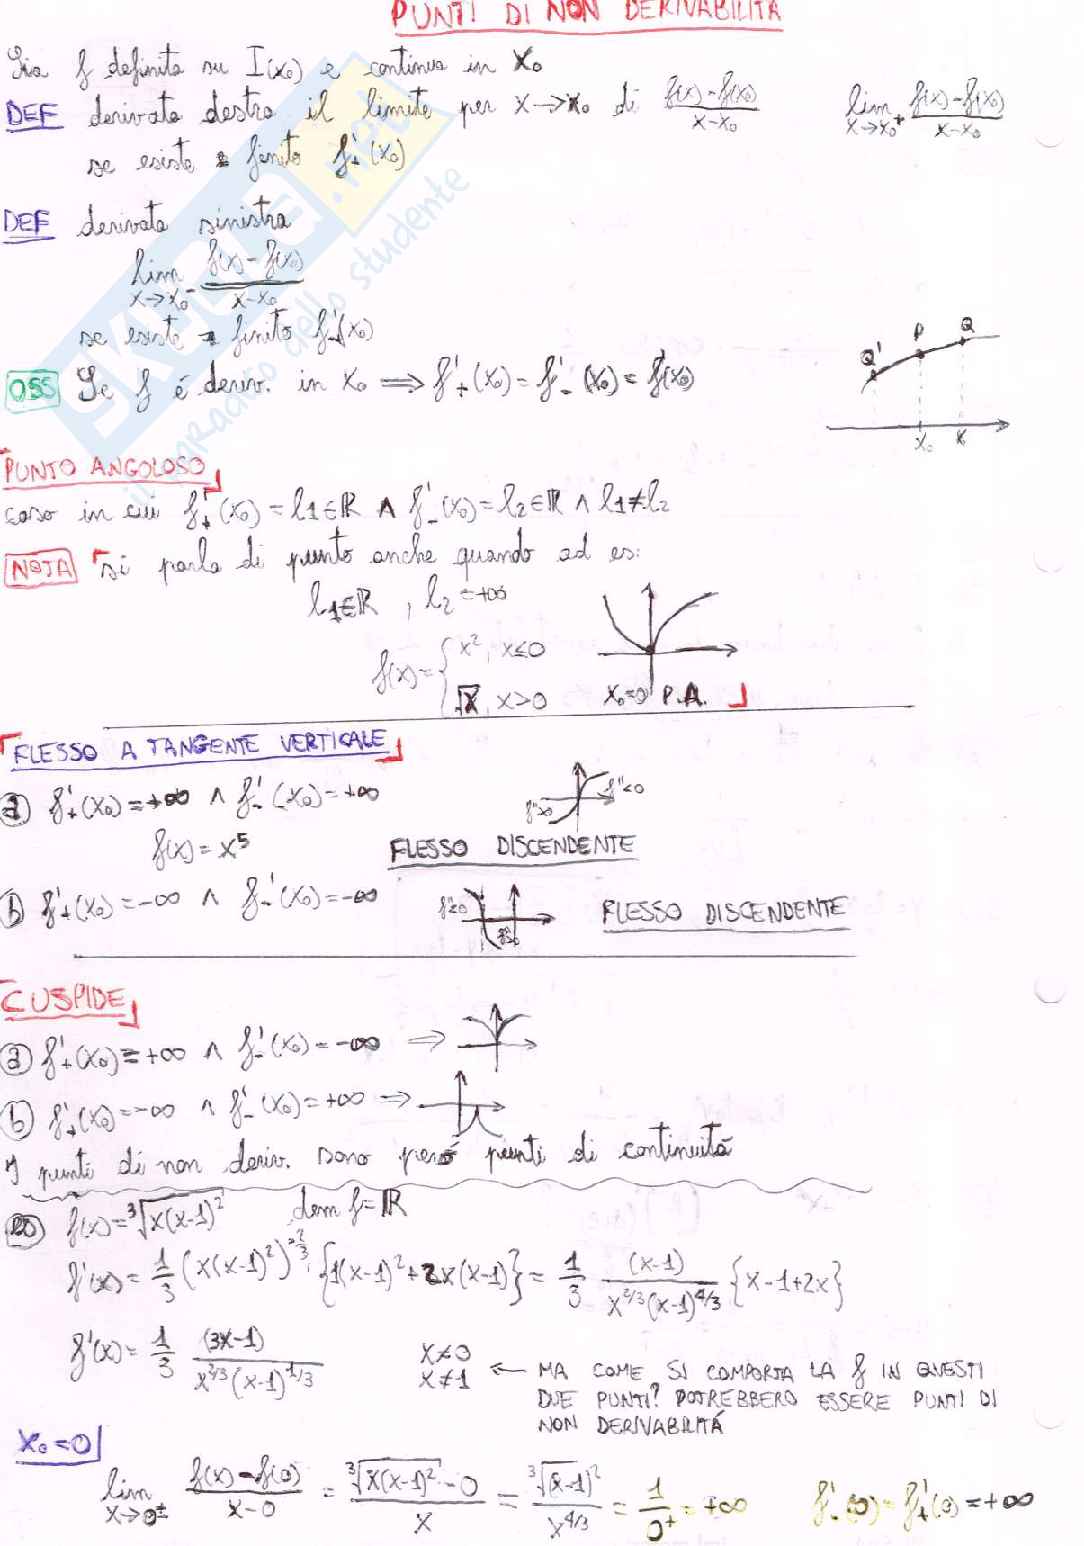 PUNTI DI NON DERIVABILITÀ
Sia f definita su I(x₀) e continua in x₀
DEF derivata destra il limite per x→x₀ di (f(x)-f(x₀))/(x-x₀) lim x→x₀⁺ (f(x)-f(x₀))/(x-x₀)
se esiste e finito f'₊(x₀)
DEF derivata sinistra
lim x→x₀⁻ (f(x)-f(x₀))/(x-x₀)
se esiste e finito f'₋(x₀)
Q' P Q
OSS Se f é deriv. in x₀ ⟹ f'₊(x₀) = f'₋(x₀) = f'(x₀)
x₀ x
PUNTO ANGOLOSO
caso in cui f'₊(x₀) = l₁∈ℝ ∧ f'₋(x₀) = l₂∈ℝ ∧ l₁≠l₂
NOTA si parla di punto anche quando ad es:
l₁∈ℝ , l₂=+∞
f(x)= { x², x≤0
√x, x>0 x₀=0 P.A.
FLESSO A TANGENTE VERTICALE
a) f'₊(x₀)=+∞ ∧ f'₋(x₀)=+∞ f''>0 f''<0
f(x)=x⁵ FLESSO DISCENDENTE
b) f'₊(x₀)=-∞ ∧ f'₋(x₀)=-∞ FLESSO DISCENDENTE
CUSPIDE
a) f'₊(x₀)=+∞ ∧ f'₋(x₀)=-∞ ⟹
b) f'₊(x₀)=-∞ ∧ f'₋(x₀)=+∞ ⟹
I punti di non deriv. sono peró punti di continuitá
es f(x)=³√(x(x-1)²) dom f=ℝ
f'(x)= 1/3 (x(x-1)²)^(-2/3) {1(x-1)²+2x(x-1)} = 1/3 (x-1)/(x^(2/3)(x-1)^(4/3)) {x-1+2x}
f'(x)= 1/3 (3x-1)/(x^(2/3)(x-1)^(1/3)) x≠0
x≠1 ← MA COME SI COMPORTA LA f IN QUESTI
DUE PUNTI? POTREBBERO ESSERE PUNTI DI
NON DERIVABILITÁ
x₀=0
lim x→0± (f(x)-f(0))/(x-0) = (³√(x(x-1)²)-0)/x = ³√(x-1)²/x^(4/3) = 1/0⁺ = +∞ f'₋(0)=f'₊(0)=+∞
SKUOLA.net
il paradiso dello studente